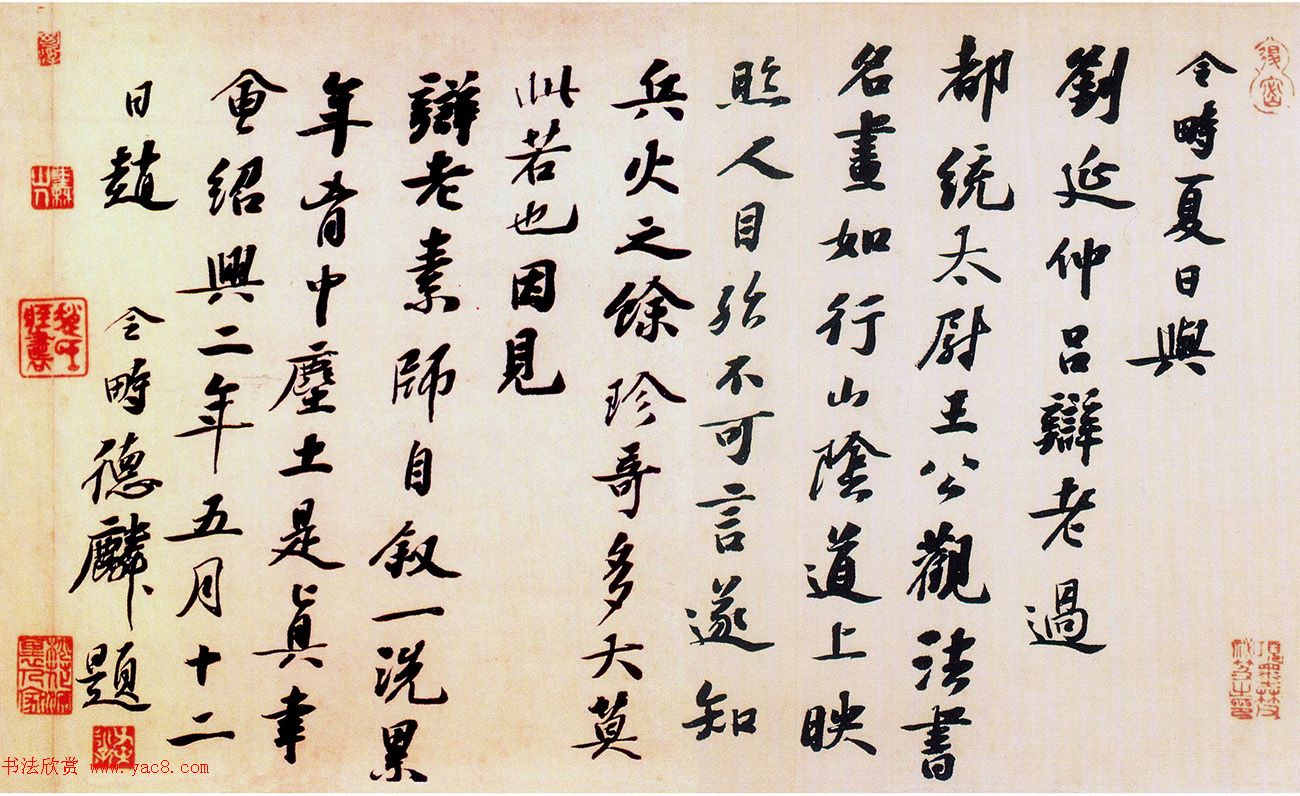 令畤夏日與
劉延仲呂辯老過
都統太尉王公觀法書
名畫如行山陰道上映
照人目殆不可言遂知
兵火之餘珍奇多大莫
此若也因見
辯老素師自叙一洗累
年胷中塵土是真幸
會紹興二年五月十二
日趙 令畤德麟題
书法欣赏 www.yac8.com